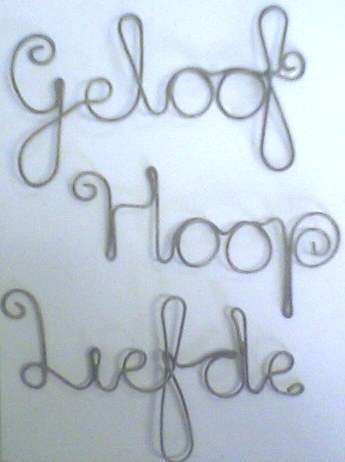 Geloof
Hoop
Liefde